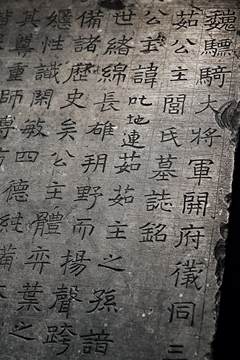 魏驃騎大將軍開府儀同三
茹公主閭氏墓誌銘
公主諱叱地連茹茹主之孫諳
世緒綿長雄朔野而揚聲跨
備諸歷史矣公主體弈葉之
性識閑敏四德純備
其尊重師